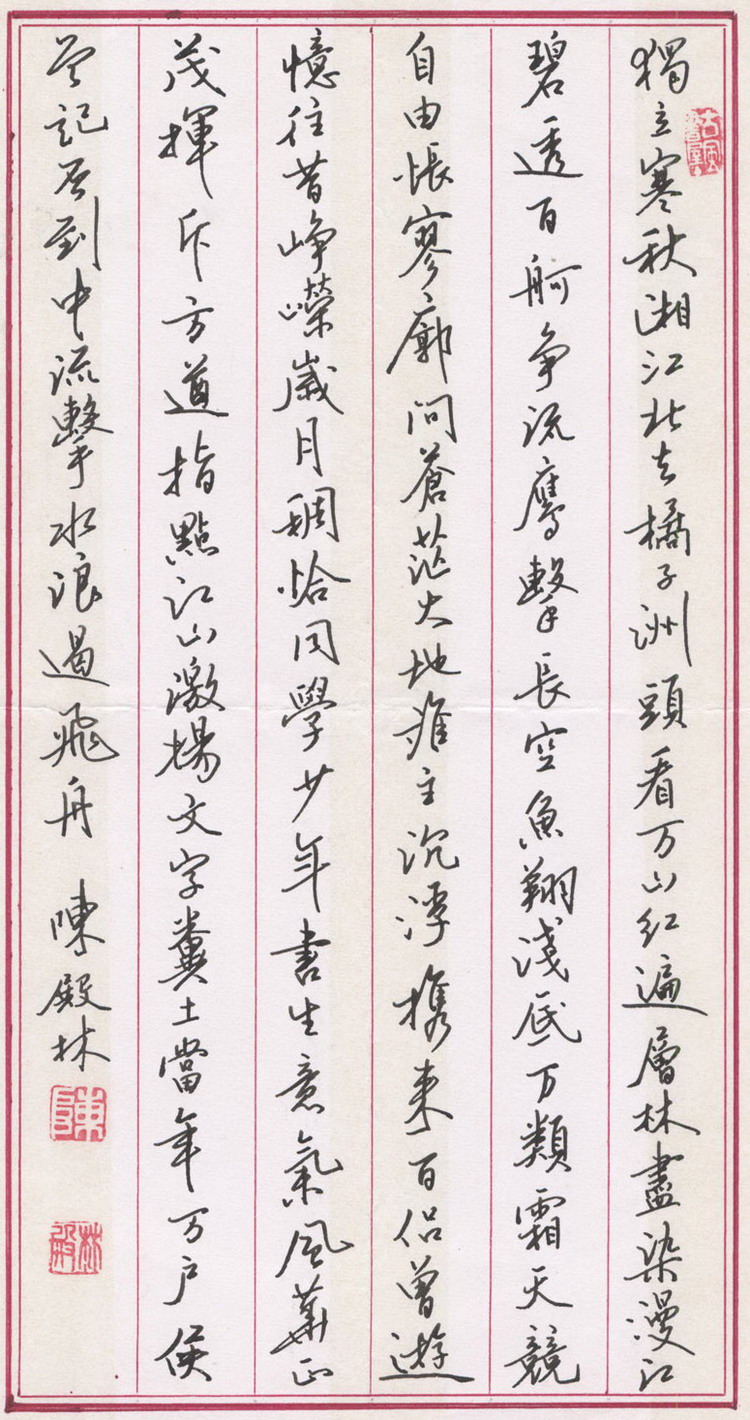 獨立寒秋湘江北去橘子洲頭看万山红遍層林盡染漫江
碧透百舸争流鹰擊長空魚翔淺底万類霜天競
自由悵寥廓问蒼茫大地誰主沉浮攜來百侣曾遊
憶往昔峥嶸歲月稠恰同學少年書生意氣風華正
茂揮斥方遒指點江山激揚文字糞土當年万户侯
曾記否到中流擊水浪遏飛舟 陳殿林
陳